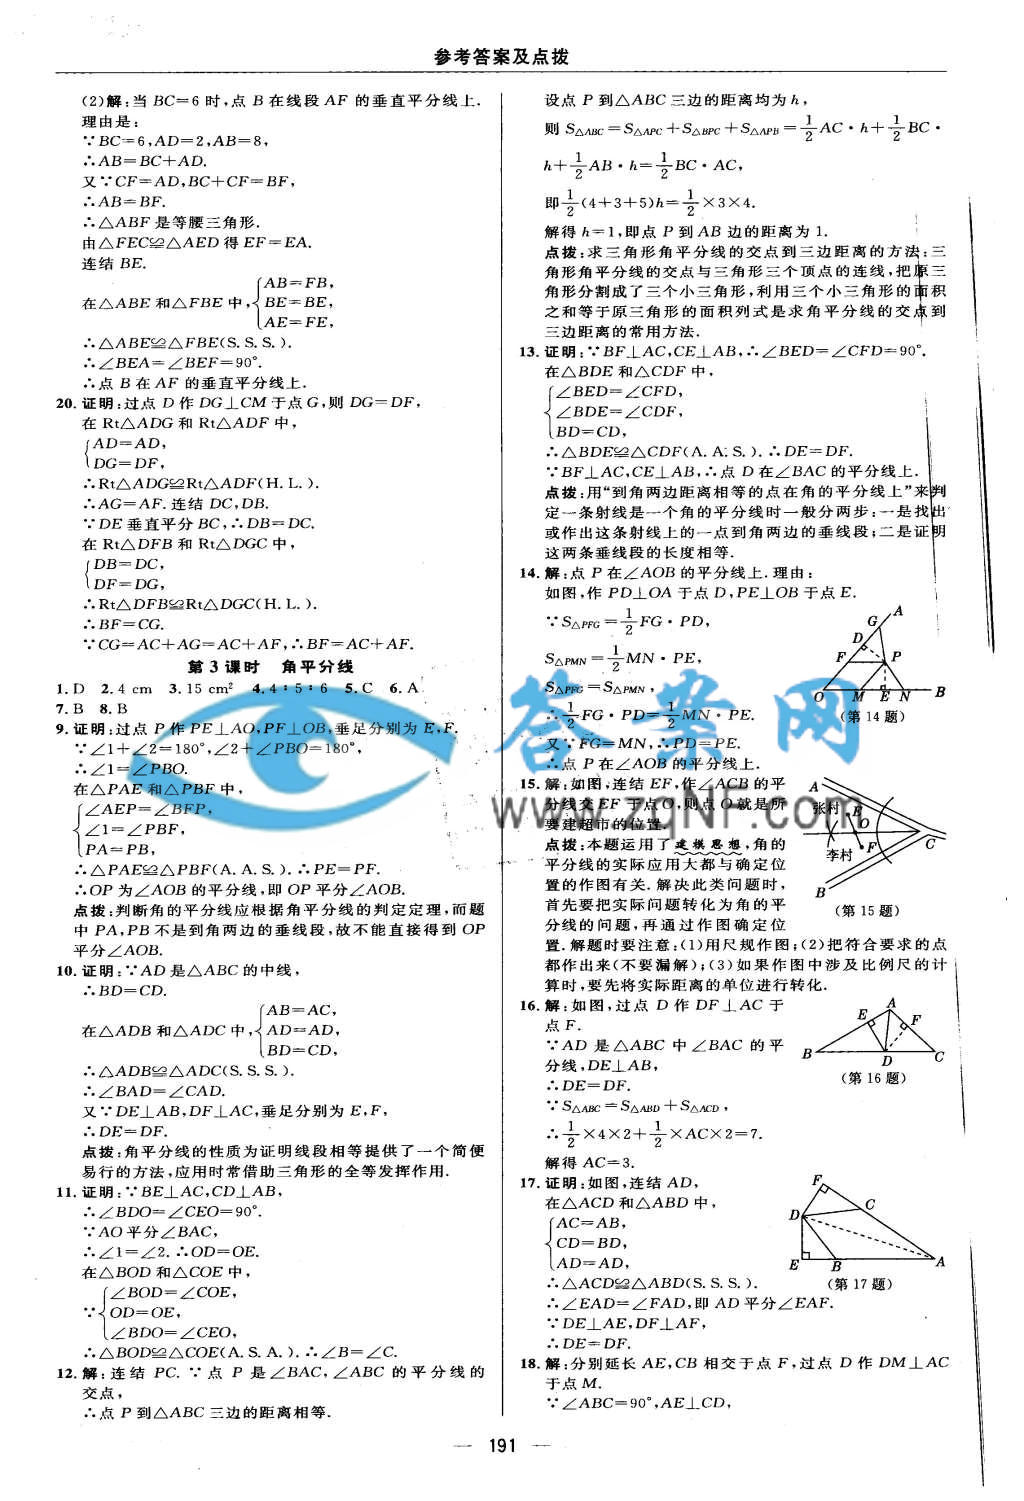 参考答案及点拨
(2)解:当 BC=6 时,点 B 在线段 AF 的垂直平分线上.
理由是:
∵BC=6,AD=2,AB=8,
∴AB=BC+AD.
又∵CF=AD,BC+CF=BF,
∴AB=BF.
∴△ABF 是等腰三角形.
由△FEC≌△AED 得 EF=EA.
连结 BE.
在△ABE 和△FBE 中,{AB=FB,
BE=BE,
AE=FE,
∴△ABE≌△FBE(S.S.S.).
∴∠BEA=∠BEF=90°.
∴点 B 在 AF 的垂直平分线上.
20.证明:过点 D 作 DG⊥CM 于点 G,则 DG=DF,
在 Rt△ADG 和 Rt△ADF 中,
{AD=AD,
DG=DF,
∴Rt△ADG≌Rt△ADF(H.L.).
∴AG=AF.连结 DC,DB.
∵DE 垂直平分 BC,∴DB=DC.
在 Rt△DFB 和 Rt△DGC 中,
{DB=DC,
DF=DG,
∴Rt△DFB≌Rt△DGC(H.L.).
∴BF=CG.
∵CG=AC+AG=AC+AF,∴BF=AC+AF.
第 3 课时 角平分线
1.D 2.4 cm 3.15 cm² 4.4∶5∶6 5.C 6.A
7.B 8.B
9.证明:过点 P 作 PE⊥AO,PF⊥OB,垂足分别为 E,F.
∵∠1+∠2=180°,∠2+∠PBO=180°,
∴∠1=∠PBO.
在△PAE 和△PBF 中,
{∠AEP=∠BFP,
∠1=∠PBF,
PA=PB,
∴△PAE≌△PBF(A.A.S.).∴PE=PF.
∴OP 为∠AOB 的平分线,即 OP 平分∠AOB.
点拨:判断角的平分线应根据角平分线的判定定理,而题
中 PA,PB 不是到角两边的垂线段,故不能直接得到 OP
平分∠AOB.
10.证明:∵AD 是△ABC 的中线,
∴BD=CD.
在△ADB 和△ADC 中,{AB=AC,
AD=AD,
BD=CD,
∴△ADB≌△ADC(S.S.S.).
∴∠BAD=∠CAD.
又∵DE⊥AB,DF⊥AC,垂足分别为 E,F,
∴DE=DF.
点拨:角平分线的性质为证明线段相等提供了一个简便
易行的方法,应用时常借助三角形的全等发挥作用.
11.证明:∵BE⊥AC,CD⊥AB,
∴∠BDO=∠CEO=90°.
∵AO 平分∠BAC,
∴∠1=∠2.∴OD=OE.
在△BOD 和△COE 中,
∵{∠BOD=∠COE,
OD=OE,
∠BDO=∠CEO,
∴△BOD≌△COE(A.S.A.).∴∠B=∠C.
12.解:连结 PC.∵点 P 是∠BAC,∠ABC 的平分线的
交点,
∴点 P 到△ABC 三边的距离相等.
设点 P 到△ABC 三边的距离均为 h,
则 S△ABC=S△APC+S△BPC+S△APB=1/2AC·h+1/2BC·
h+1/2AB·h=1/2BC·AC,
即1/2(4+3+5)h=1/2×3×4.
解得 h=1,即点 P 到 AB 边的距离为 1.
点拨:求三角形角平分线的交点到三边距离的方法:三
角形角平分线的交点与三角形三个顶点的连线,把原三
角形分割成了三个小三角形,利用三个小三角形的面积
之和等于原三角形的面积列式是求角平分线的交点到
三边距离的常用方法.
13.证明:∵BF⊥AC,CE⊥AB,∴∠BED=∠CFD=90°.
在△BDE 和△CDF 中,
{∠BED=∠CFD,
∠BDE=∠CDF,
BD=CD,
∴△BDE≌△CDF(A.A.S.).∴DE=DF.
∵BF⊥AC,CE⊥AB,∴点 D 在∠BAC 的平分线上.
点拨:用“到角两边距离相等的点在角的平分线上”来判
定一条射线是一个角的平分线时一般分两步:一是找出
或作出这条射线上的一点到角两边的垂线段;二是证明
这两条垂线段的长度相等.
14.解:点 P 在∠AOB 的平分线上.理由:
如图,作 PD⊥OA 于点 D,PE⊥OB 于点 E.
∵S△PFG=1/2FG·PD,
S△PMN=1/2MN·PE,
S△PFG=S△PMN,
∴1/2FG·PD=1/2MN·PE.
又∵FG=MN,∴PD=PE.
∴点 P 在∠AOB 的平分线上.
A
G
D
F
P
O
M
E
N
B
(第 14 题)
15.解:如图,连结 EF,作∠ACB 的平
分线交 EF 于点 O,则点 O 就是所
要建超市的位置.
点拨:本题运用了建模思想,角的
平分线的实际应用大都与确定位
置的作图有关.解决此类问题时,
首先要把实际问题转化为角的平
分线的问题,再通过作图确定位
置.解题时要注意:(1)用尺规作图;(2)把符合要求的点
都作出来(不要漏解);(3)如果作图中涉及比例尺的计
算时,要先将实际距离的单位进行转化.
A
张村
E
O
F
李村
C
B
(第 15 题)
16.解:如图,过点 D 作 DF⊥AC 于
点 F.
∵AD 是△ABC 中∠BAC 的平
分线,DE⊥AB,
∴DE=DF.
∵S△ABC=S△ABD+S△ACD,
∴1/2×4×2+1/2×AC×2=7.
解得 AC=3.
A
E
F
B
D
C
(第 16 题)
17.证明:如图,连结 AD,
在△ACD 和△ABD 中,
{AC=AB,
CD=BD,
AD=AD,
∴△ACD≌△ABD(S.S.S.).
∴∠EAD=∠FAD,即 AD 平分∠EAF.
∵DE⊥AE,DF⊥AF,
∴DE=DF.
F
C
D
E
B
A
(第 17 题)
18.解:分别延长 AE,CB 相交于点 F,过点 D 作 DM⊥AC
于点 M.
∵∠ABC=90°,AE⊥CD,
— 191 —
答案网
www.zqNF.com